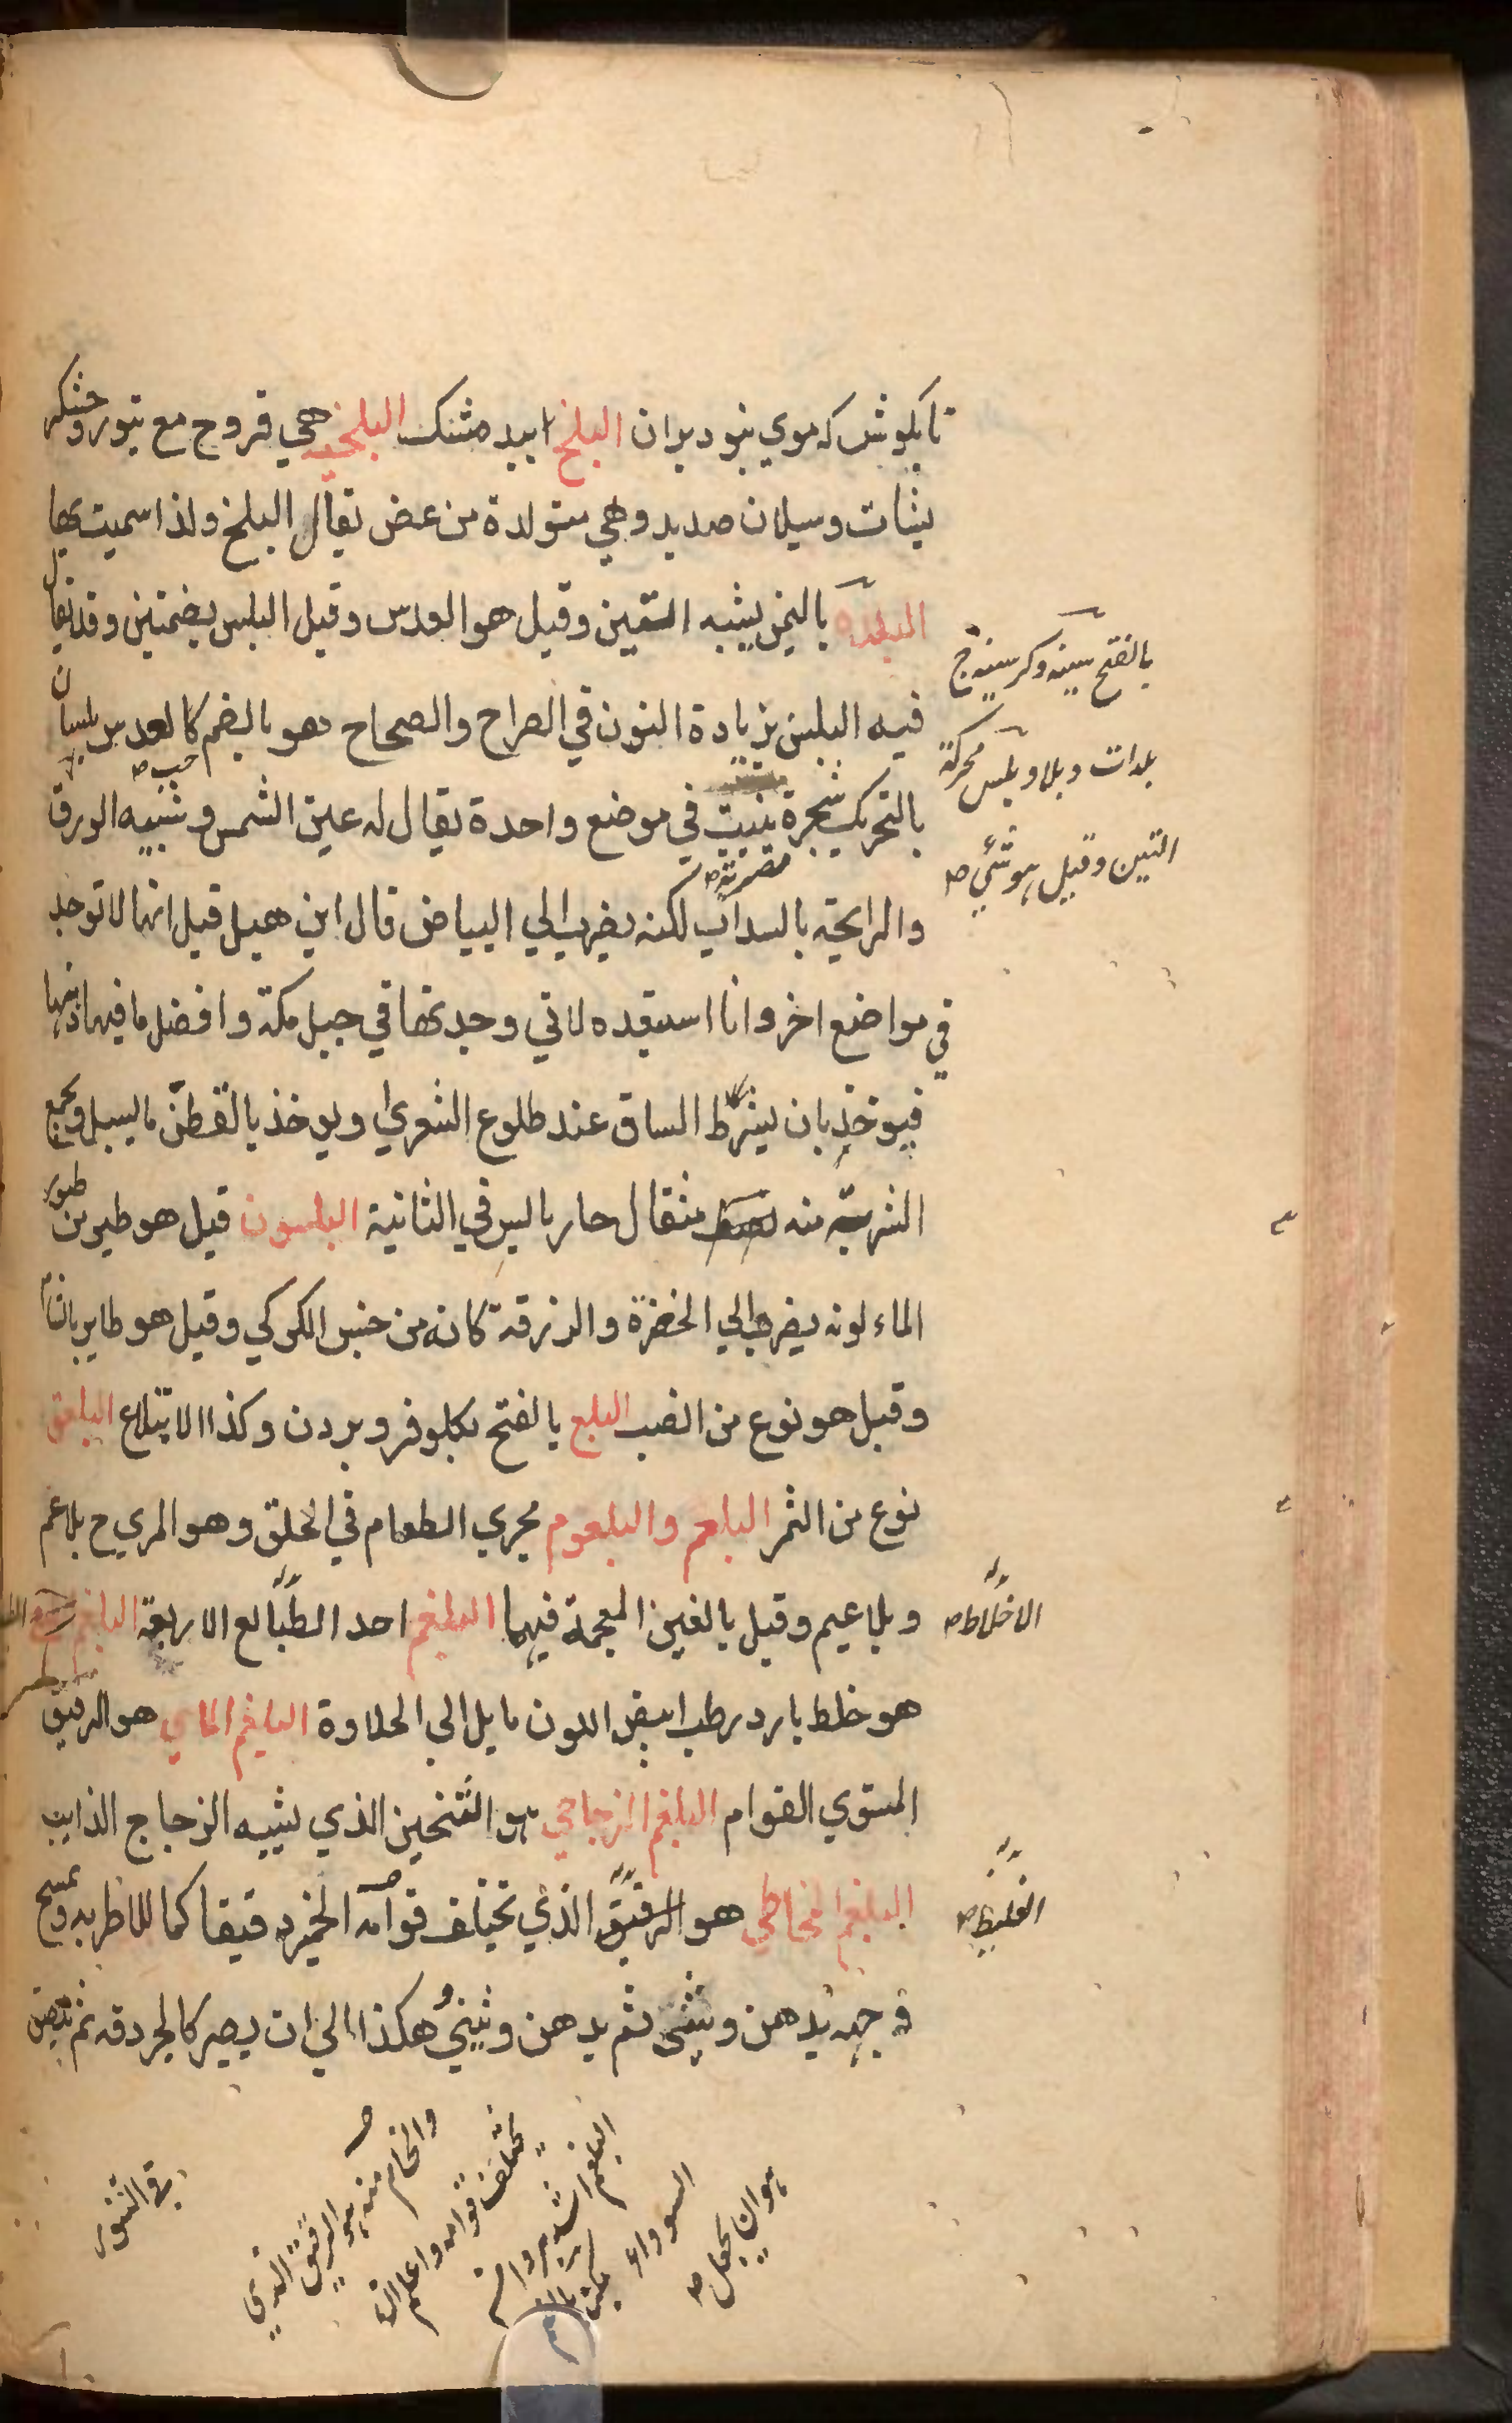 تا بگوش که موي بنود بران البلخ ابيد مشنک البلخيه هي قروح مع بثور وخشکر
يثات وسيلان صديد وهي متولدة من عض يقال البلخ ولذا سميت بها
البلده باليمن يشبه التين وقيل هو العدس وقيل البلس بضمتين وقد يقال
فيه البلسن بزيادة النون في الصراح والصحاح هو بالضم کالعدس بلسان
بالتحريک شجرة تنبت في موضع واحدة يقال له عين الشمس و شبيه الورق
والرايحة بالسداب لکنه يضرب الي البياض قال ابن هبل قيل انها لا توجد
في مواضع اخر وانا استبعده لاني وجدتها في جبل مکة وافضل ما فيها دهنها
فيوخذ بان يشرط الساق عند طلوع الشعري ويوخذ بالقطن ما يسيل ويجمع
الشربة منه مثقال حار يابس في الثانية البلسون قيل هو طير من طيور
الماء لونه يضرب الي الخضرة والزرقة کانه من جنس الکرکي وقيل هو طاير بالشام
وقيل هو نوع من الضب البلع بالفتح بکلو فرو بردن وکذا الابتلاع البلعق
نوع من التمر البلعم والبلعوم مجري الطعام في الحلق وهو المري ح بلاعم
وبلاعيم وقيل بالغين المعجمة فيهما البلغم احد الطبايع الاربعة البلغم
هو خلط بارد رطب ابيض اللون مايل الي الحلاوة البلغم المايي هو الرقيق
المستوي القوام البلغم الزجاجي هو الثخين الذي يشبه الزجاج الذايب
البلغم المخاطي هو الرقيق الذي تختلف قوامه الخمير دقيقا کما للاطريه ويمسح
وجهه بدهن ويثني ثم يدهن ويثني هکذا الي ان يصير کالجردقه ثم
بالفتح سينه وکرسينه ج
بلدات وبلاد وبلس محرکة
التين وقيل هو شئ صح
حب صح
الاخلاط صح
الغليظ صح
هو ان يجعل صح
السوداء
البلغم
يختلف قوامه واعلم ان
والخام منه هو الرقيق الذي
في التنور